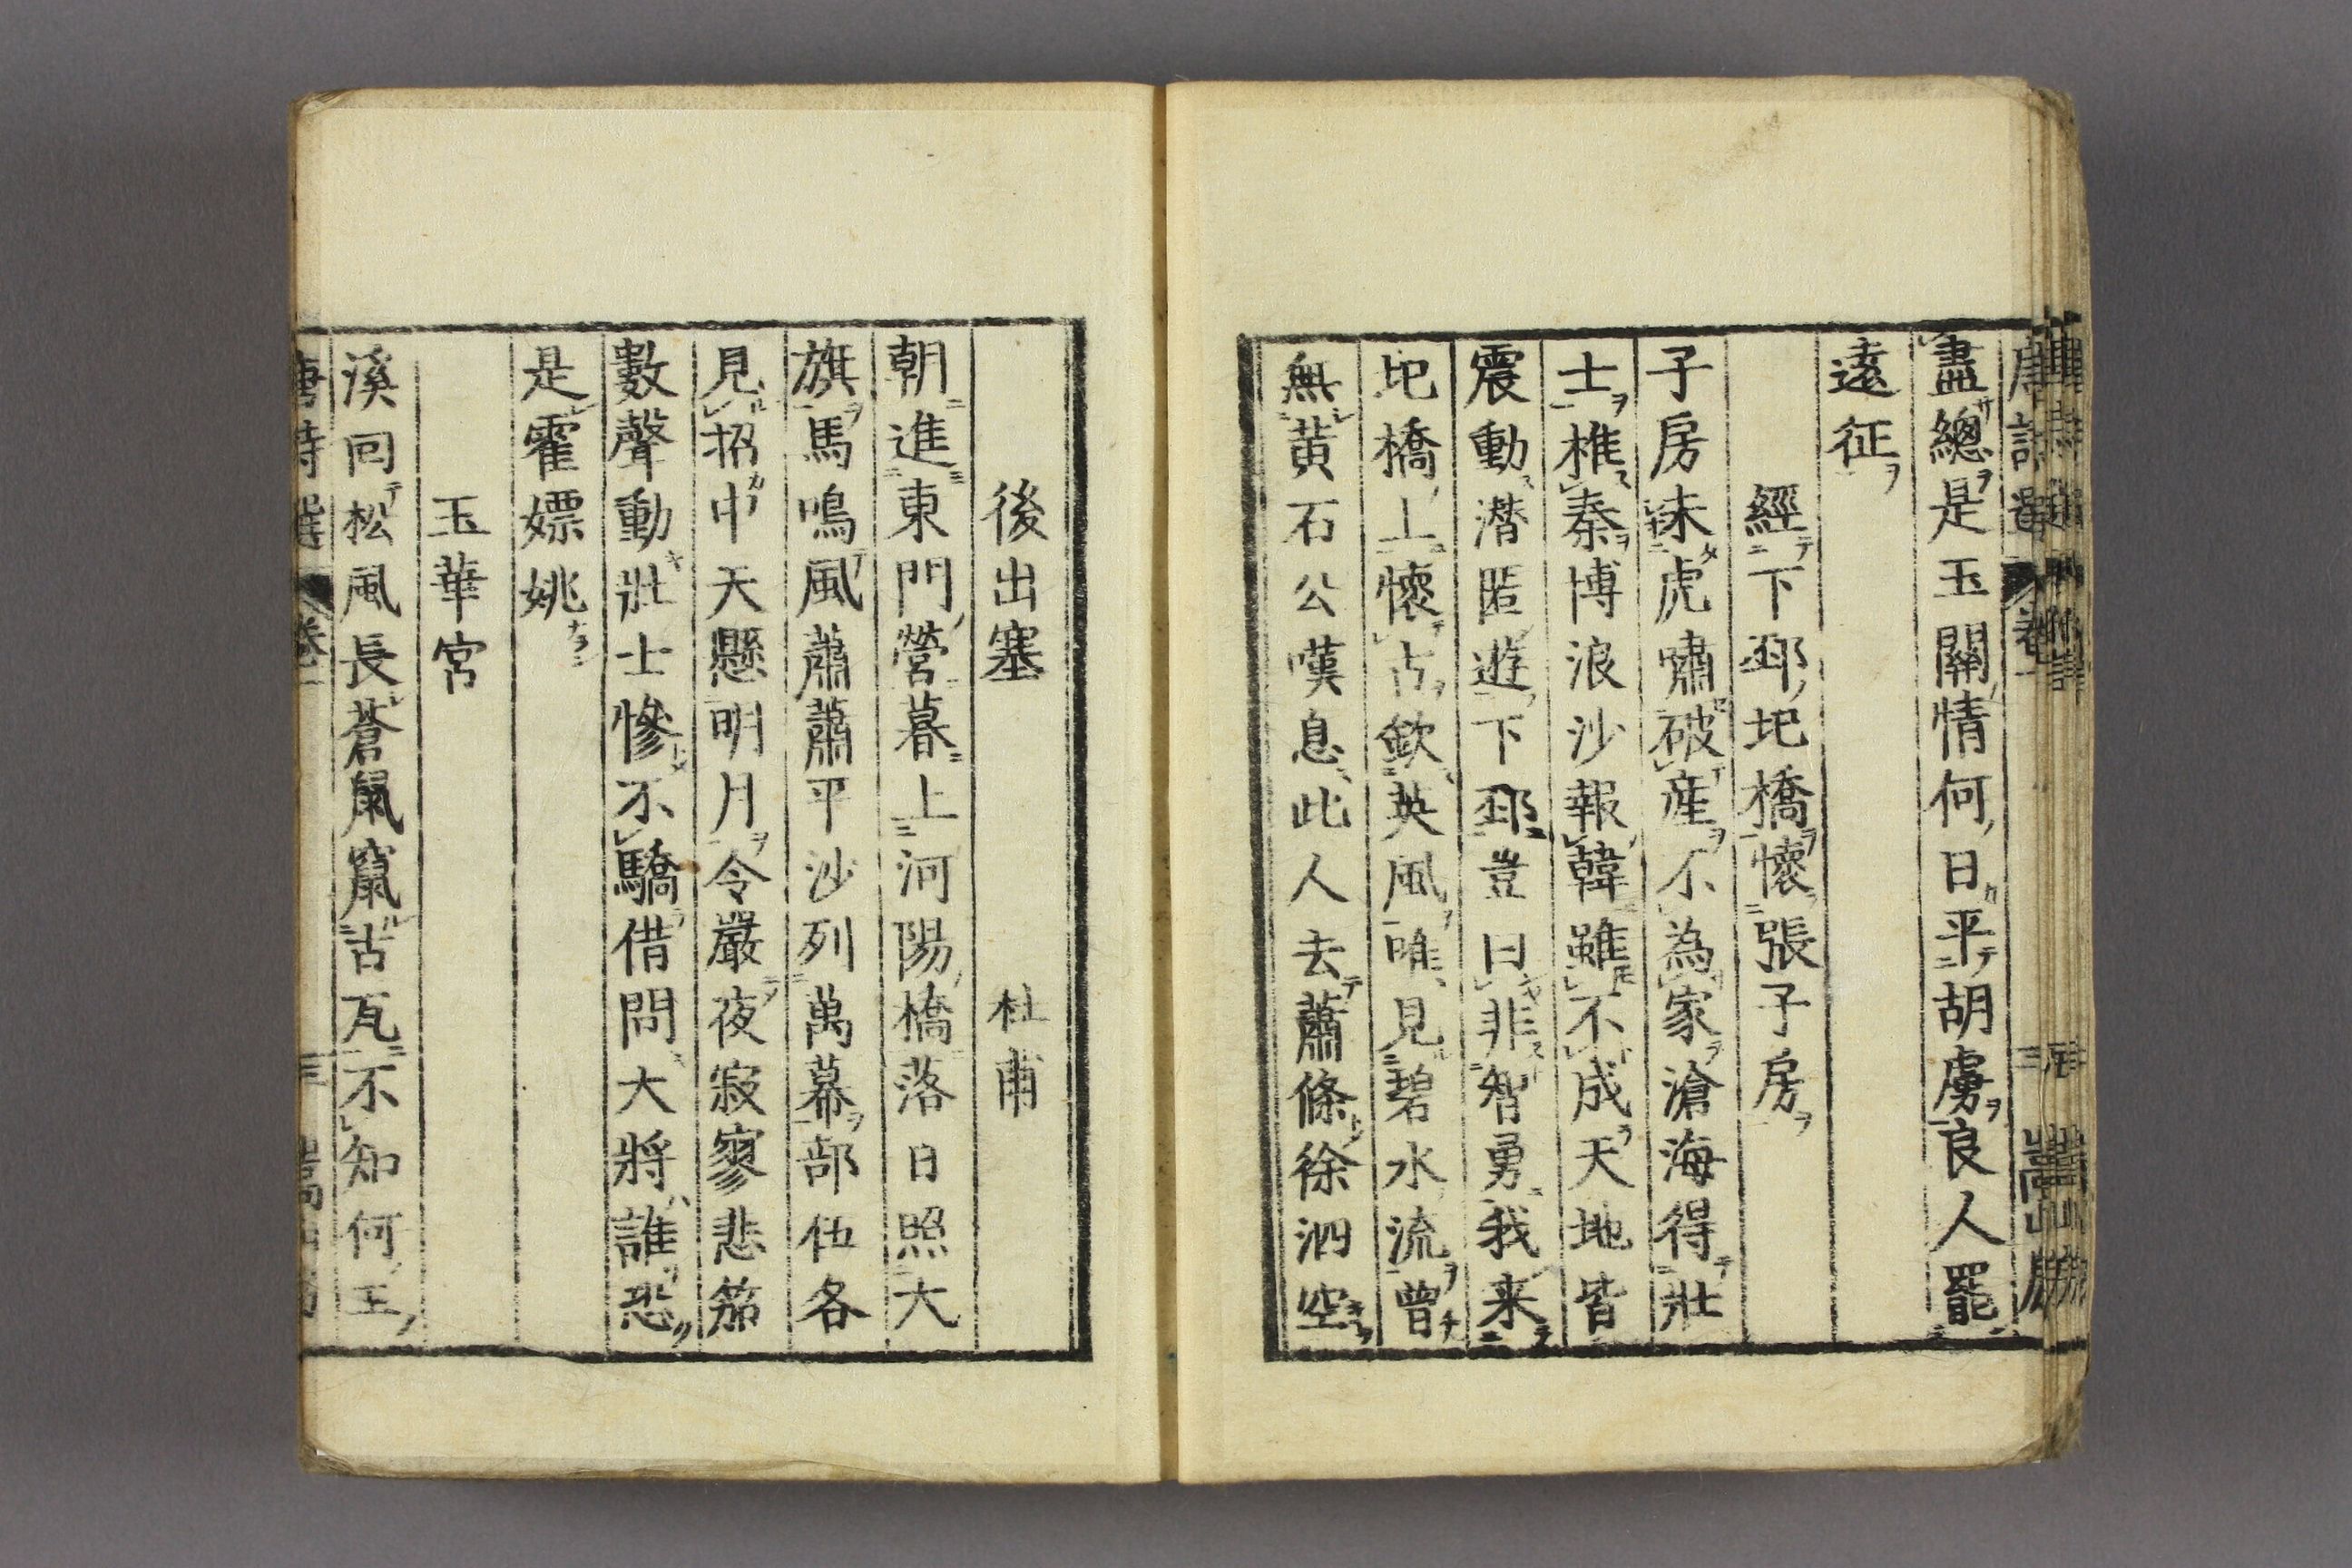 盡總是玉關情何日平胡虜良人罷
遠征
經下邳圯橋懷張子房
子房未虎嘯破産不為家滄海得壯
士椎秦博浪沙報韓雖不成天地皆
震動潜匿遊下邳豈曰非智勇我来
圯橋上懷古欽英風唯見碧水流曾
無黃石公嘆息此人去蕭條徐泗空
後出塞 杜甫
朝進東門營暮上河陽橋落日照大
旗馬鳴風蕭蕭平沙列萬幕部伍各
見招中天懸明月令嚴夜寂寥悲笳
數聲動壯士慘不驕借問大將誰恐
是霍嫖姚
玉華宮
溪回松風長蒼鼠竄古瓦不知何王
唐詩選 卷一